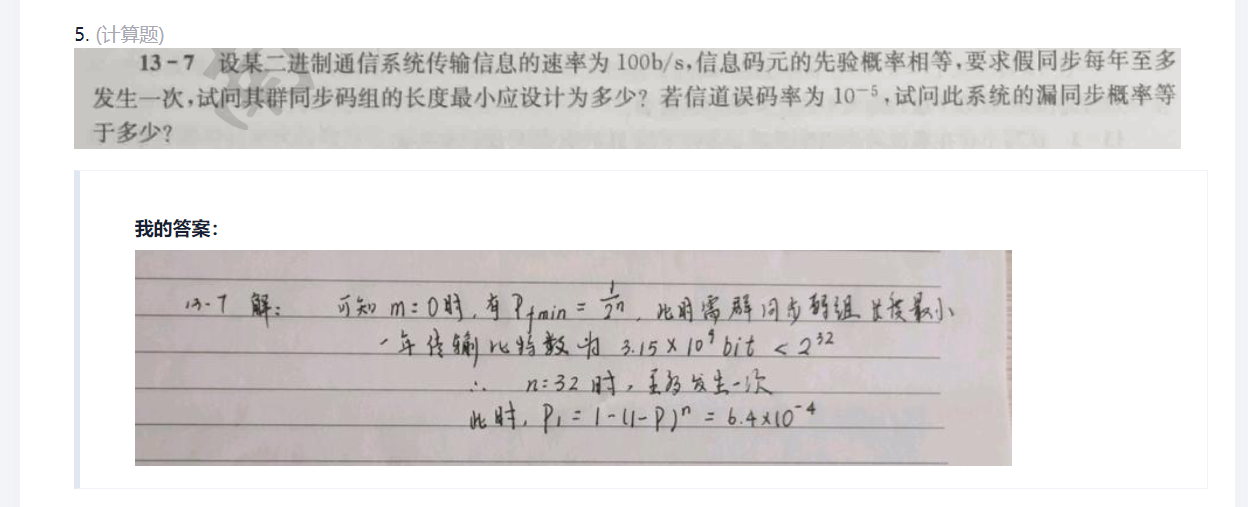 5. (计算题)
13-7 设某二进制通信系统传输信息的速率为 100b/s,信息码元的先验概率相等,要求假同步每年至多
发生一次,试问其群同步码组的长度最小应设计为多少? 若信道误码率为 10⁻⁵,试问此系统的漏同步概率等
于多少?
我的答案:
13-7 解: 可知 m=0时,有 Pfmin = 1/2ⁿ, 此时需群同步码组长度最小
一年传输比特数为 3.15×10⁹ bit < 2³²
∴ n=32 时,至多发生一次
此时, P₁ = 1-(1-P)ⁿ = 6.4×10⁻⁴